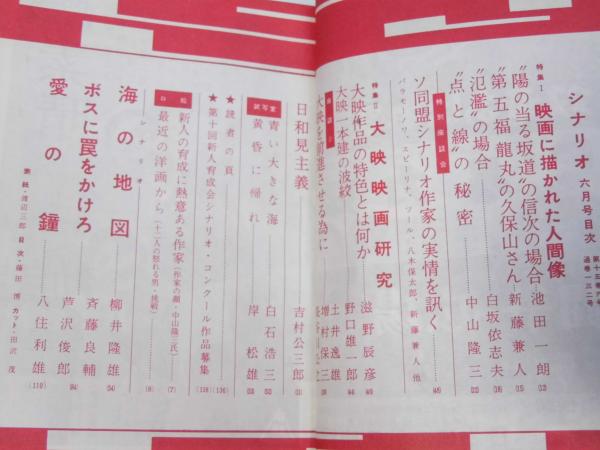 シナリオ 六月号目次
特集Ⅰ 映画に描かれた人間像
“陽の当る坂道”の信次の場合 池田一朗 (12)
“第五福龍丸”の久保山さん 新藤兼人 (15)
“氾濫”の場合 白坂依志夫 (18)
“点と線”の秘密 中山隆三
特別座談会
ソ同盟シナリオ作家の実情を訊く
パラモーノワ、スピーリナ、ソール・八木保太郎・新藤兼人 他
特集Ⅱ 大映映画研究
大映作品の特色とは何か 滋野辰彦
大映一本建の波紋 野口雄一郎
座談会
大映を前進させる為に 土井逸雄
増村保三
日和見主義 吉村公三郎
試写室
青い大きな海 白石浩三
黄昏に帰れ 岸松雄
★読者の頁 (136)
★第十回新人育成会シナリオ・コンクール作品募集 (138)
日誌
新人の育成に熱意ある作家 (作家の顔・中山隆三氏) (7)
最近の洋画から (十二人の怒れる男・挑戦) (8)
シナリオ
海の地図 柳井隆雄 (54)
ボスに罠をかけろ 斉藤良輔
芦沢俊郎
愛の鐘 八住利雄 (110)
表紙・渡辺三郎 目次・藤田 博 カット・田沢 茂